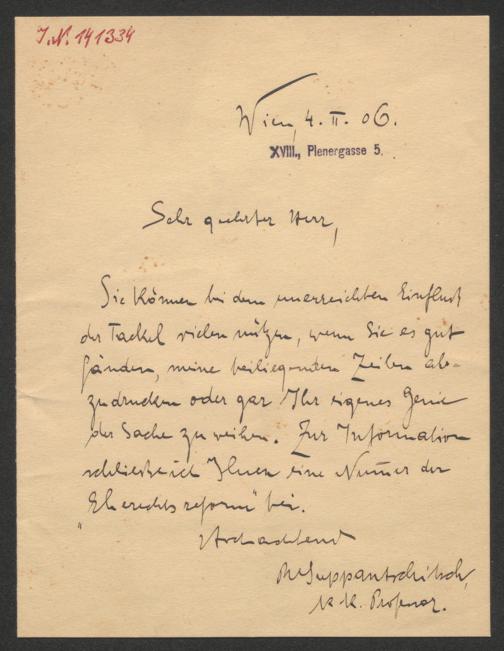 I.N. 141334
Wien, 4. II. 06.
XVIII., Plenergasse 5.
Sehr geehrter Herr,
Sie können bei dem unerreichten Einfluß
der Fackel vielen nützen, wenn Sie es gut
fänden, meine beiliegenden Zeilen ab-
zudrucken oder gar Ihr eigenes Genie
der Sache zu weihen. Zur Information
schließe ich Ihnen eine Num̅er der
„Eherechtsreform" bei.
Hochachtend
RSuppantschitsch,
k. k. Professor.